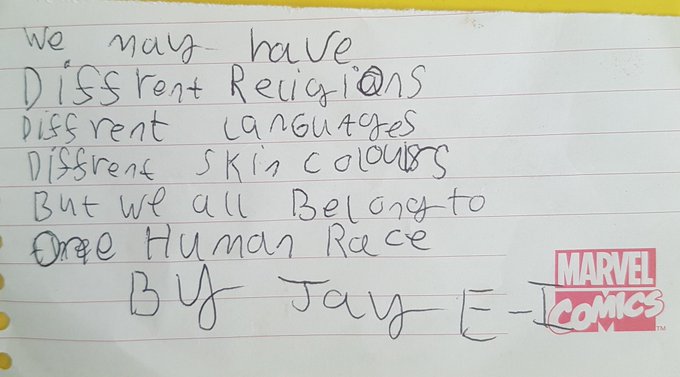 We may have
Diffrent Religions
Diffrent Languages
Diffrent Skin colours
But we all Belong to
One Human Race
By Jay E-I
MARVEL
COMICS
TM